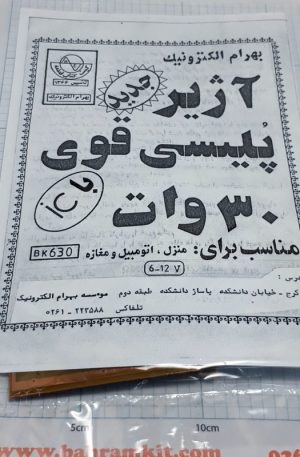 بهرام الکترونیک
تاسیس ۱۳۶۶
بهرام الکترونیک
آژیر
جدید
پلیسی قوی
با iC
۳۰ وات
مناسب برای: منزل، اتومبیل و مغازه
BK630
6-12 V
کرج - خیابان دانشکده پاساژ دانشکده طبقه دوم موسسه بهرام الکترونیک
تلفاکس ۲۲۳۵۸۸ - ۰۲۶۱
5cm 10cm
www.bahramkit.com 026